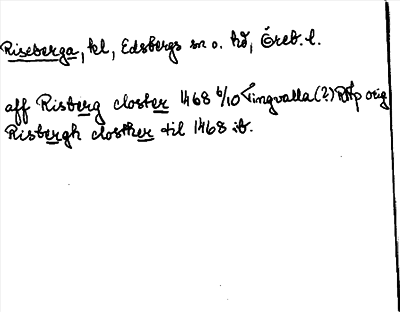 Riseberga, kl, Edsbergs sn o. hd, Öreb. l.
aff Risberg closter 1468 6/10 Tingvalla (?) RAp orig
Risbergh closther til 1468 ib.